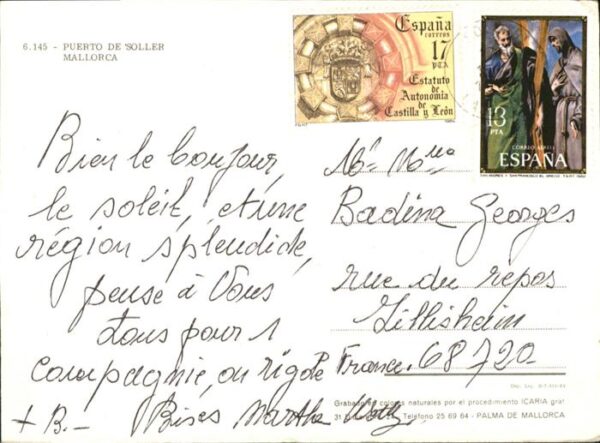 6.145 - PUERTO DE SOLLER
MALLORCA
España
correos
17
PTA
Estatuto
de
Autonomía
de
Castilla y León
13
PTA
CORREO AEREO
ESPAÑA
SAN ANDRES Y SAN FRANCISCO EL GRECO F.N.M.T. 1982
Bien le bonjour,
le soleil, et une
région splendide,
pense à Vous
tous pour 1
compagnie, on rigole
+ B.- Bises Martha
Mr Mme
Badina Georges
rue du repos
Illisheim
France. 68720
Grabado en colores naturales por el procedimiento ICARIA graf
Teléfono 25 69 64 - PALMA DE MALLORCA